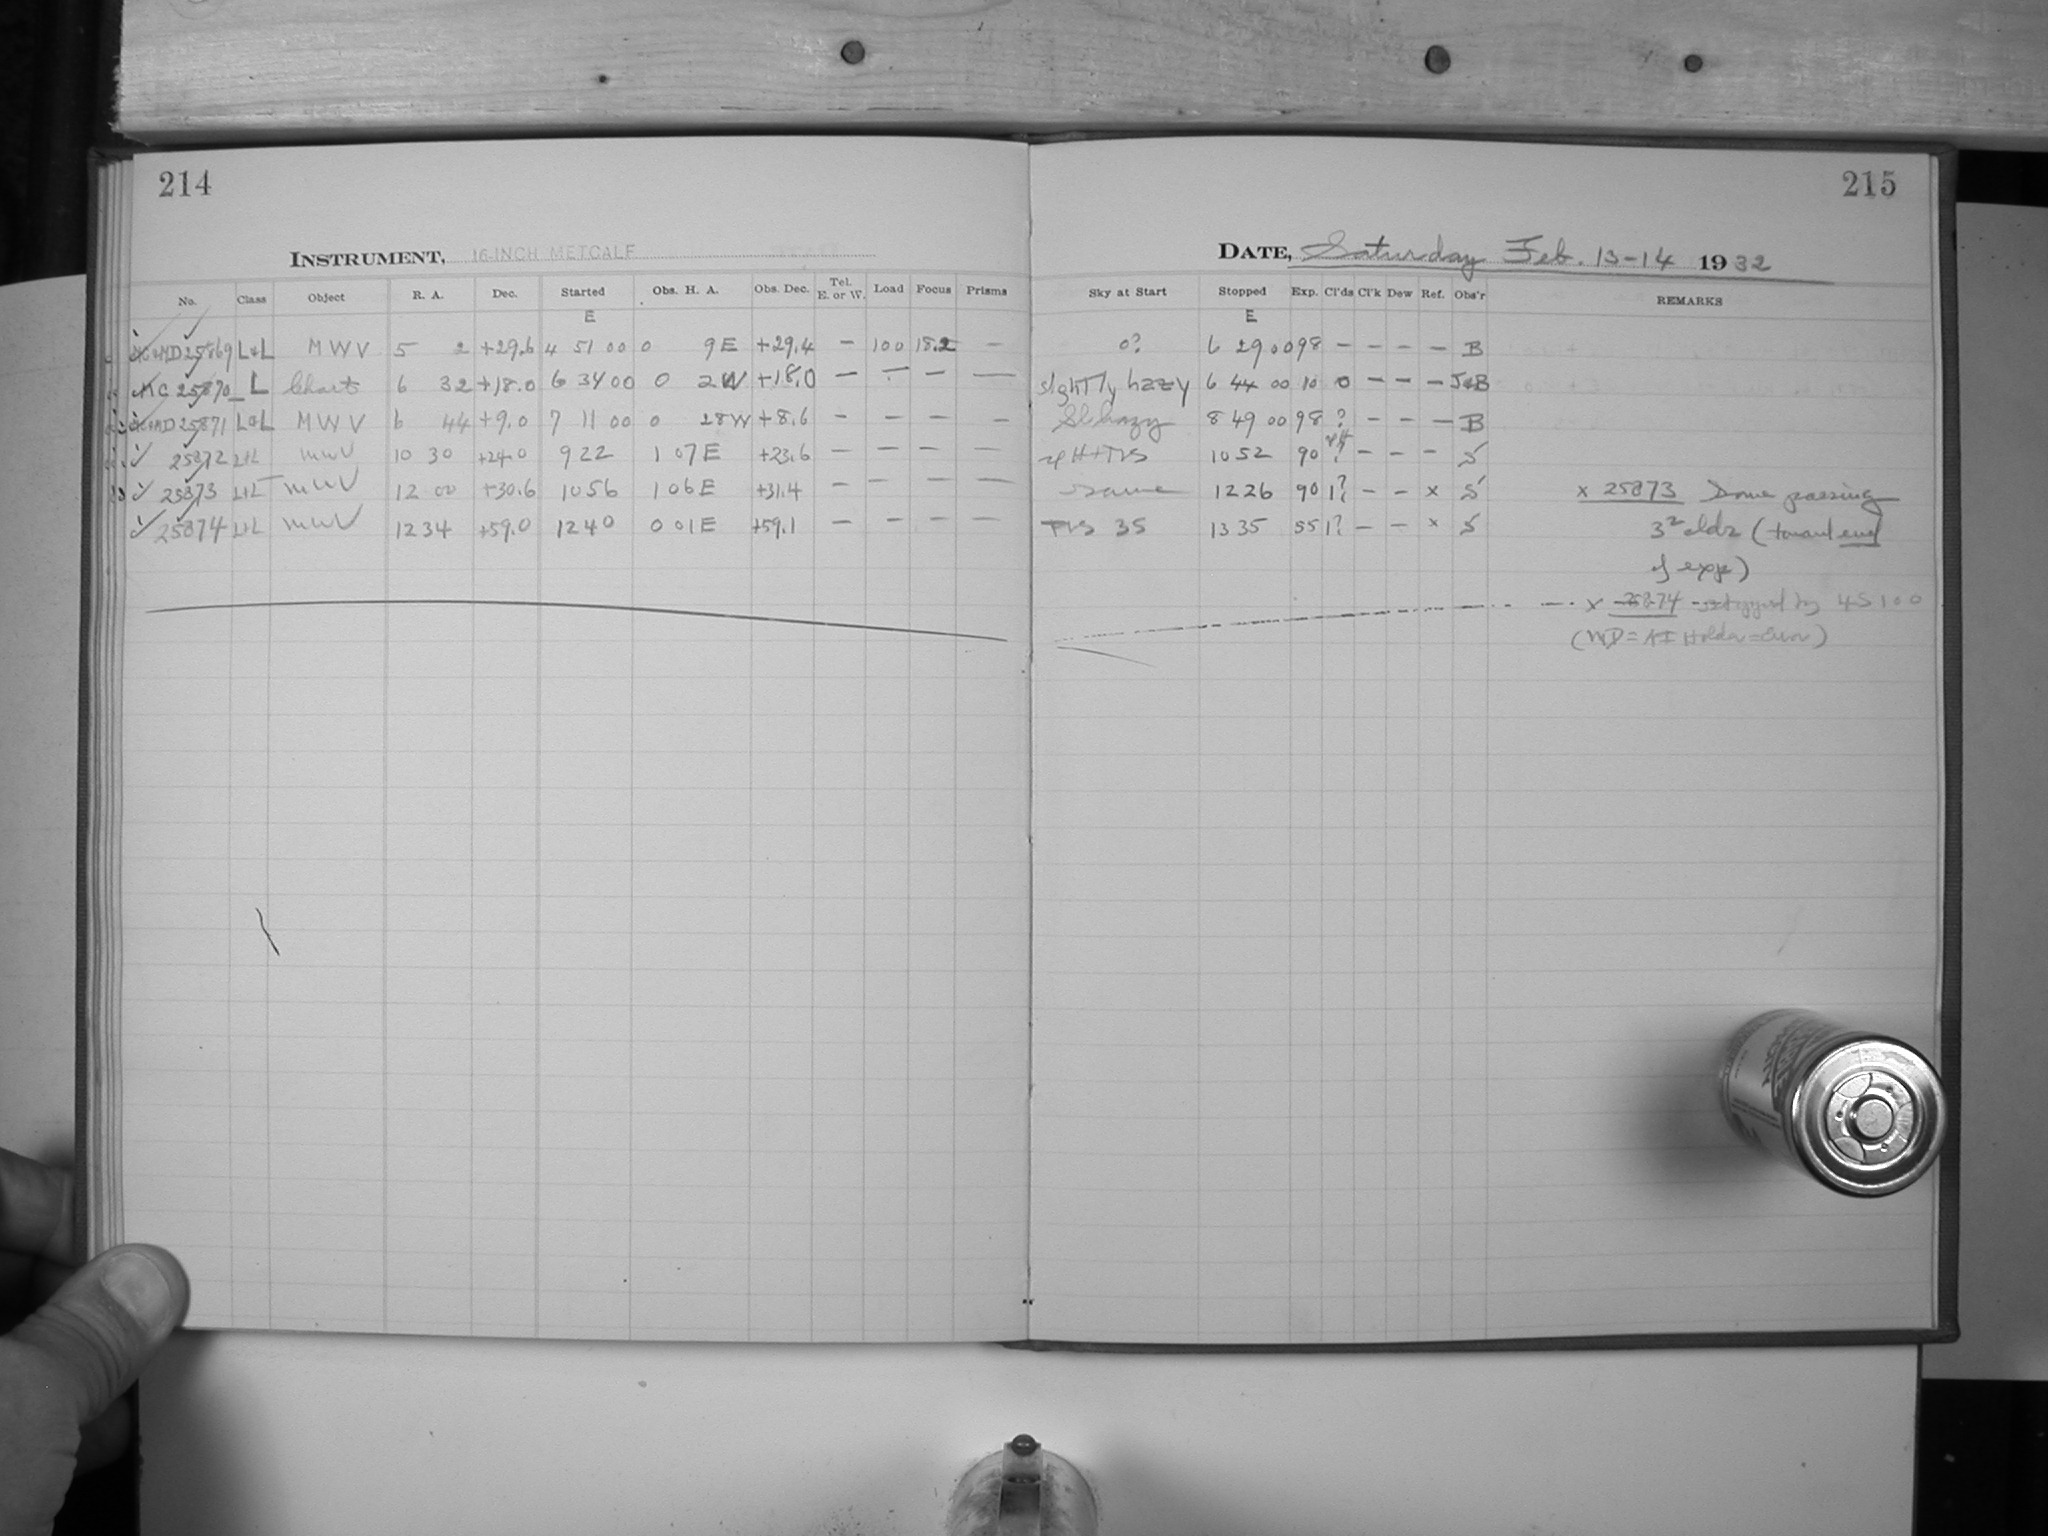 214
INSTRUMENT, 16-INCH METCALF
No. Class Object R. A. Dec. Started Obs. H. A. Obs. Dec. Tel. E. or W. Load Focus Prisms
E
MD 25869 L+L MWV 5 2 +29.6 4 51 00 0 9E +29.4 — 100 18.2 —
MC 25870 L Chart 6 32 +18.0 6 34 00 0 2W +18.0 — — — —
MD 25871 L+L MWV 6 44 +9.0 7 11 00 0 28W +8.6 — — — —
25872 L+L MWV 10 30 +24.0 9 22 1 07E +23.6 — — — —
25873 L+L MWV 12 00 +30.6 10 56 1 06E +31.4 — — — —
25874 L+L MWV 12 34 +59.0 12 40 0 01E +59.1 — — — —
215
DATE, Saturday Feb. 13-14 1932
Sky at Start Stopped Exp. Cl'ds Cl'k Dew Ref. Obs'r REMARKS
E
0? 6 29 00 98 — — — — B
slightly hazy 6 44 00 10 0 — — — J+B
Sl. hazy 8 49 00 98 ? — — — B
10 52 90 ? — — — S
Same 12 26 90 1? — — x S x 25873 Some passing
35 13 35 55 1? — — x S 3² clds (toward end
of exp)
x 25874 stopped by 45100
(MD = AI Holder = Error)